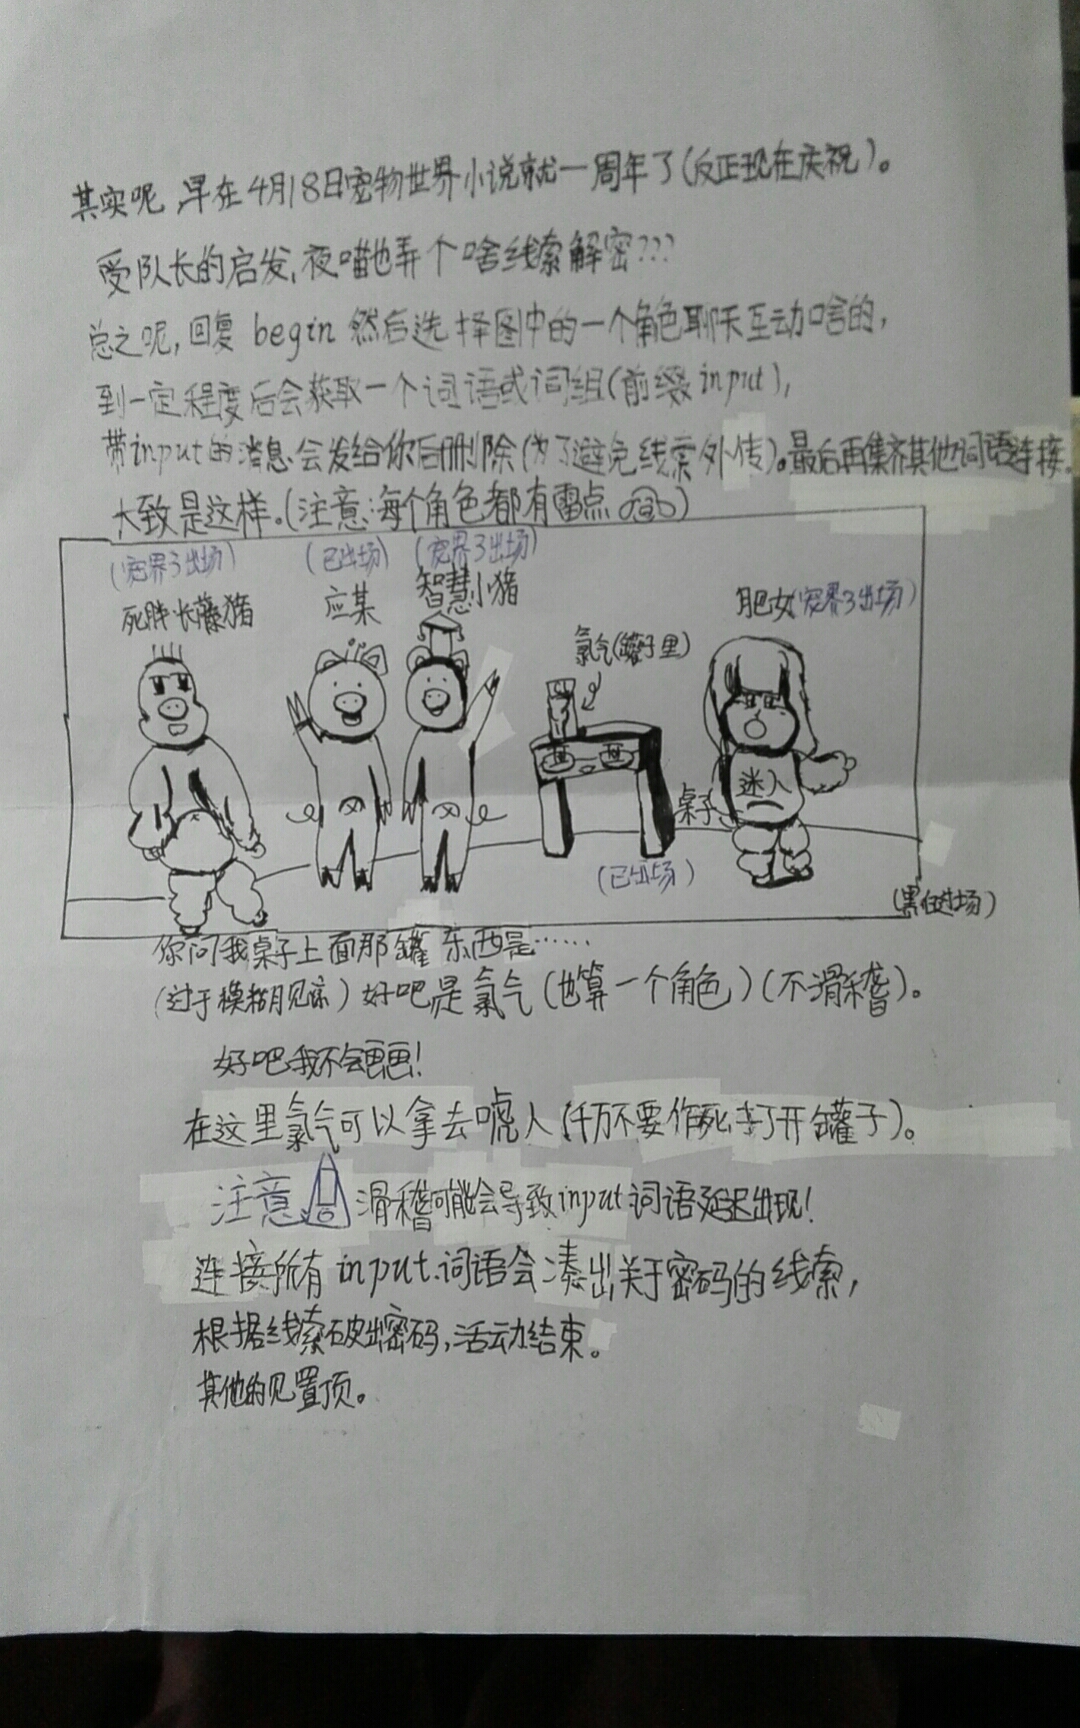 其实呢,早在4月18日宠物世界小说就一周年了(反正现在庆祝)。
受队长的启发,夜喵也弄个啥线索解密???
总之呢,回复 begin 然后选择图中的一个角色聊天互动啥的,
到一定程度后会获取一个词语或词组(前缀input),
带input的消息会发给你后删除(为了避免线索外传)。最后再集齐其他词语连接。
大致是这样。(注意:每个角色都有雷点)
(宠界3出场)
(已出场)
(宠界3出场)
死胖长藤猪
应某
智慧小猪
肥女(宠界3出场)
氯气(罐子里)
迷人
桌子
(已出场)
你问我桌子上面那罐东西是……
(过于模糊见谅)好吧是氯气(也算一个角色)(不滑稽)。
好吧我不会画画!
在这里氯气可以拿去唬人(千万不要作死打开罐子)。
注意 滑稽可能会导致input词语延迟出现!
连接所有input词语会凑出关于密码的线索,
根据线索破出密码,活动结束。
其他的见置顶。